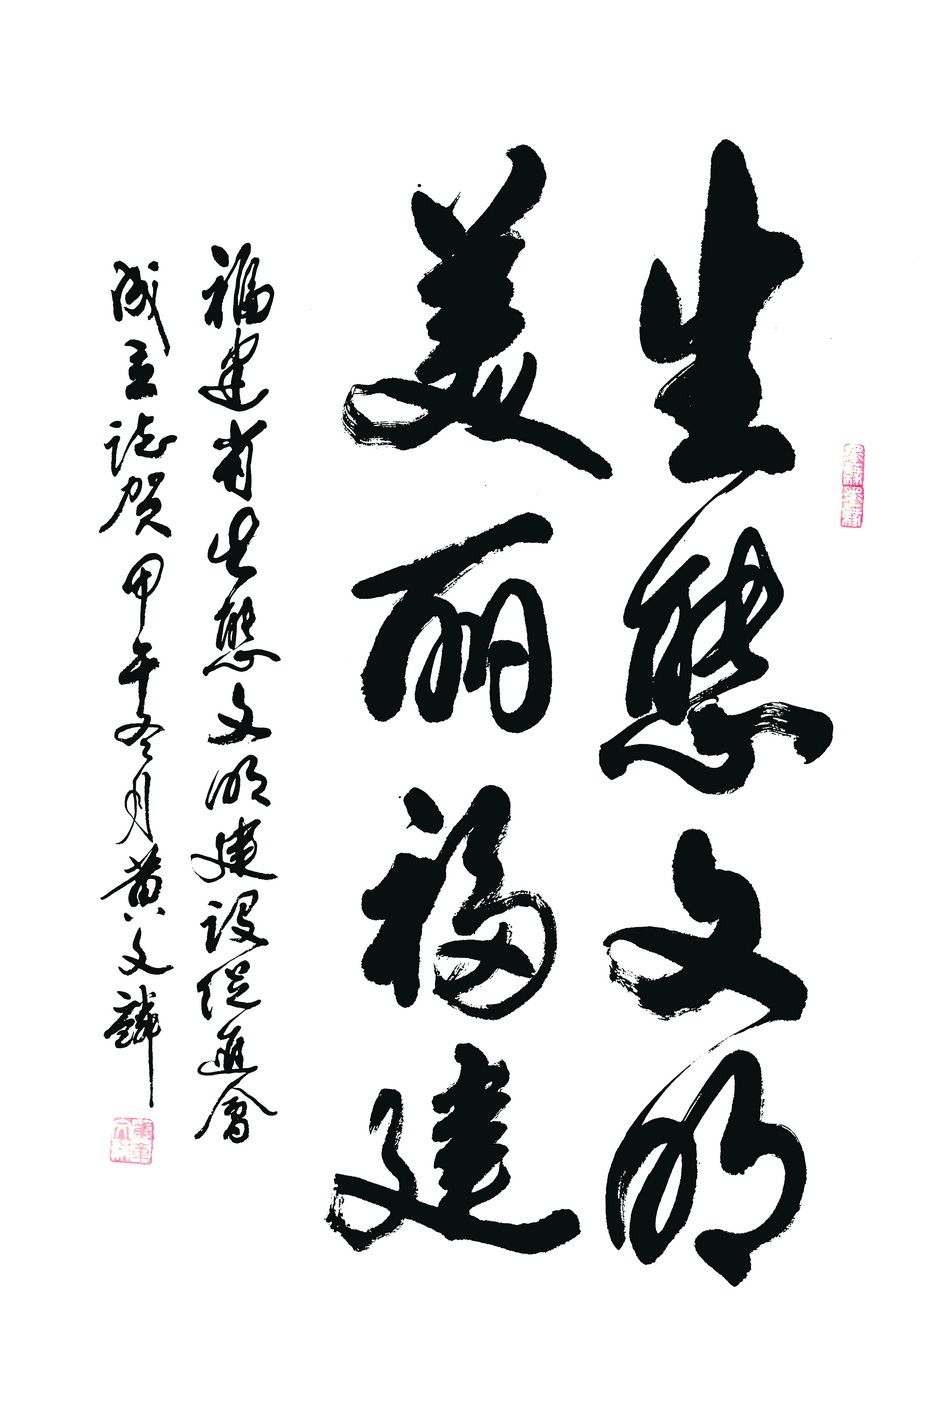 生態文明
美丽福建
福建省生態文明建设促進會
成立誌贺甲午冬月黄文麟